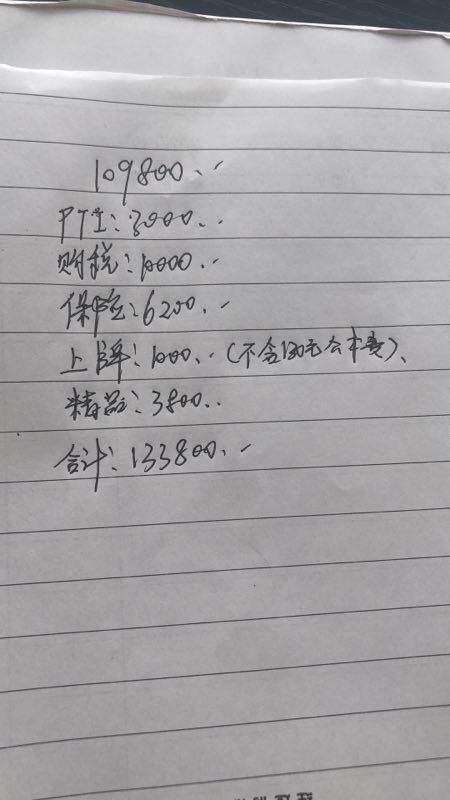 109800.
PTI: 3000..
购税: 10000..
保险: 6200.
上牌: 1000.（不含130元公本费）、
精品: 3800..
合计: 133800.